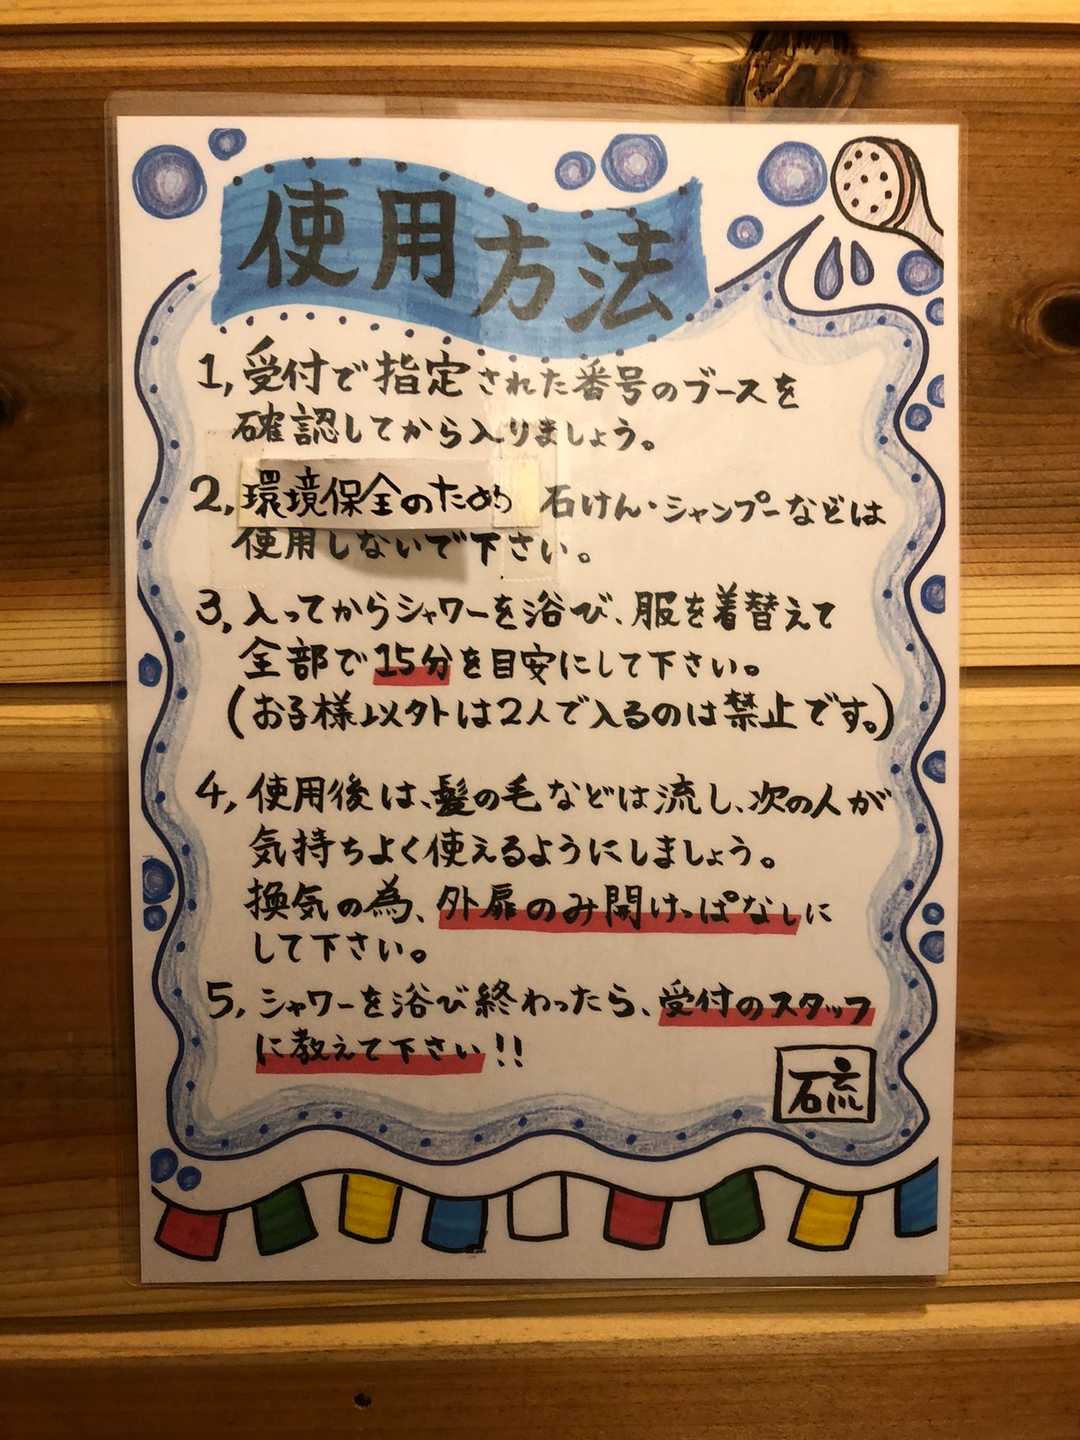 使用方法
1, 受付で指定された番号のブースを
確認してから入りましょう。
2, 環境保全のため 石けん・シャンプーなどは
使用しないで下さい。
3, 入ってからシャワーを浴び、服を着替えて
全部で15分を目安にして下さい。
(お子様以外は2人で入るのは禁止です。)
4, 使用後は、髪の毛などは流し、次の人が
気持ちよく使えるようにしましょう。
換気の為、外扉のみ開けっぱなしに
して下さい。
5, シャワーを浴び終わったら、受付のスタッフ
に教えて下さい!!
石流